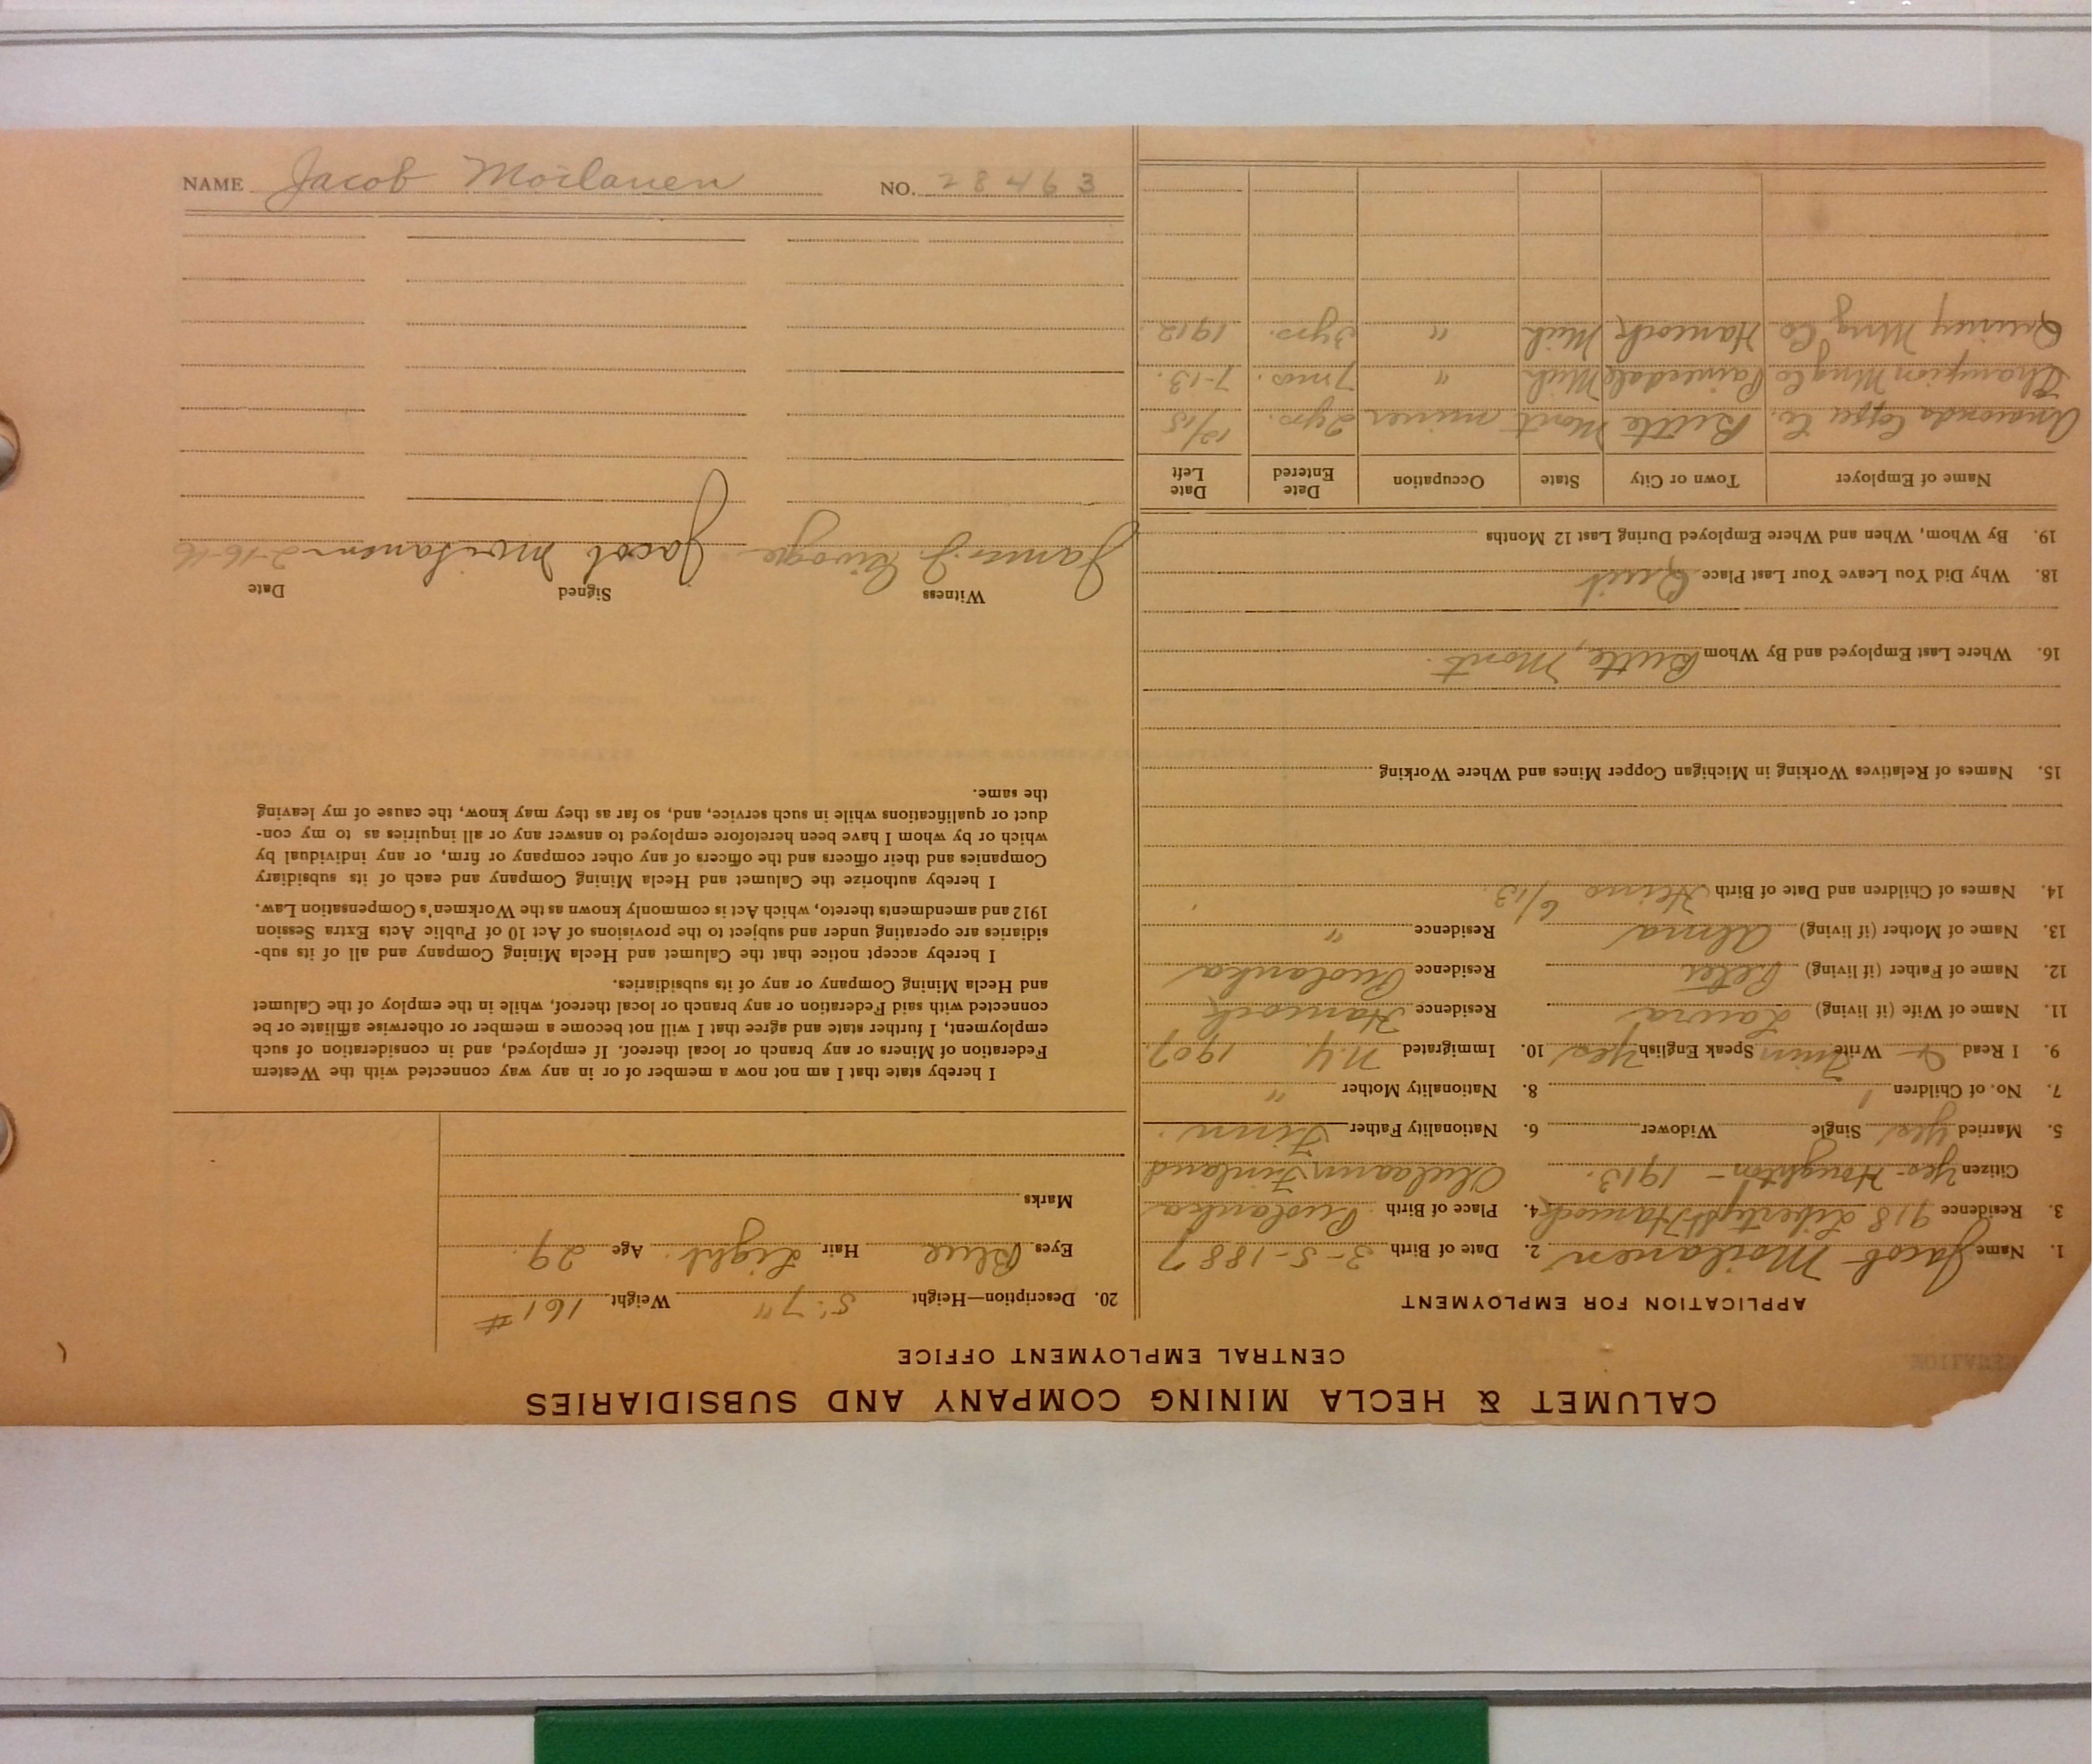 CALUMET & HECLA MINING COMPANY AND SUBSIDIARIES
CENTRAL EMPLOYMENT OFFICE
APPLICATION FOR EMPLOYMENT
1. Name Jacob Moilanen 2. Date of Birth 3-5-1887
3. Residence 918 Liberty St Hancock 4. Place of Birth Puolanka
Citizen Yes- Houghton - 1913. Finland
5. Married Yes Single Widower 6. Nationality Father Finn.
7. No. of Children 1 8. Nationality Mother "
9. I Read & Write Finn Speak English Yes 10. Immigrated N.Y. 1907
11. Name of Wife (if living) Laura Residence Hancock
12. Name of Father (if living) Peter Residence Puolanka
13. Name of Mother (if living) Alma Residence "
14. Names of Children and Date of Birth Heimo 6/13.
15. Names of Relatives Working in Michigan Copper Mines and Where Working
16. Where Last Employed and By Whom Butte, Mont.
18. Why Did You Leave Your Last Place Quit
19. By Whom, When and Where Employed During Last 12 Months
Name of Employer Town or City State Occupation Date Entered Date Left
Anaconda Copper Co. Butte Mont miner 2 yrs. 12/15
Champion Mng Co Painesdale Mich " 7 mos. 7-13.
Quincy Mng Co Hancock Mich " 3 yrs. 1912.
20. Description—Height 5' 7" Weight 161 #
Eyes Blue Hair Light. Age 29.
Marks
I hereby state that I am not now a member of or in any way connected with the Western
Federation of Miners or any branch or local thereof. If employed, and in consideration of such
employment, I further state and agree that I will not become a member or otherwise affiliate or be
connected with said Federation or any branch or local thereof, while in the employ of the Calumet
and Hecla Mining Company or any of its subsidiaries.
I hereby accept notice that the Calumet and Hecla Mining Company and all of its sub-
sidiaries are operating under and subject to the provisions of Act 10 of Public Acts Extra Session
1912 and amendments thereto, which Act is commonly known as the Workmen's Compensation Law.
I hereby authorize the Calumet and Hecla Mining Company and each of its subsidiary
Companies and their officers and the officers of any other company or firm, or any individual by
which or by whom I have been heretofore employed to answer any or all inquiries as to my con-
duct or qualifications while in such service, and, so far as they may know, the cause of my leaving
the same.
Witness Signed Date
James J. Jacob Moilanen 2-16-16
NAME Jacob Moilanen NO. 28463